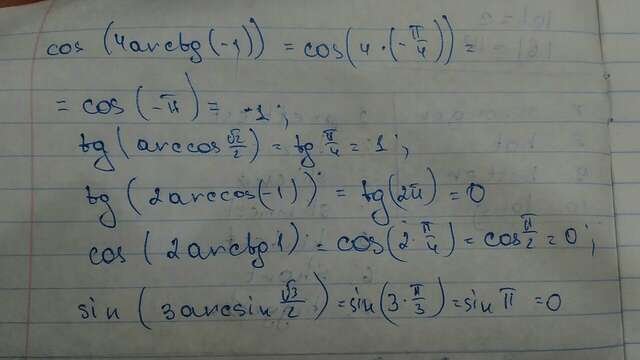 cos (4arctg(-1)) = cos(4·(-π/4)) =
= cos(-π) = -1;
tg(arccos √2/2) = tg π/4 = 1;
tg(2arccos(-1)) = tg(2π) = 0
cos(2arctg1) = cos(2·π/4) = cos π/2 = 0;
sin(3arcsin √3/2) = sin(3·π/3) = sin π = 0